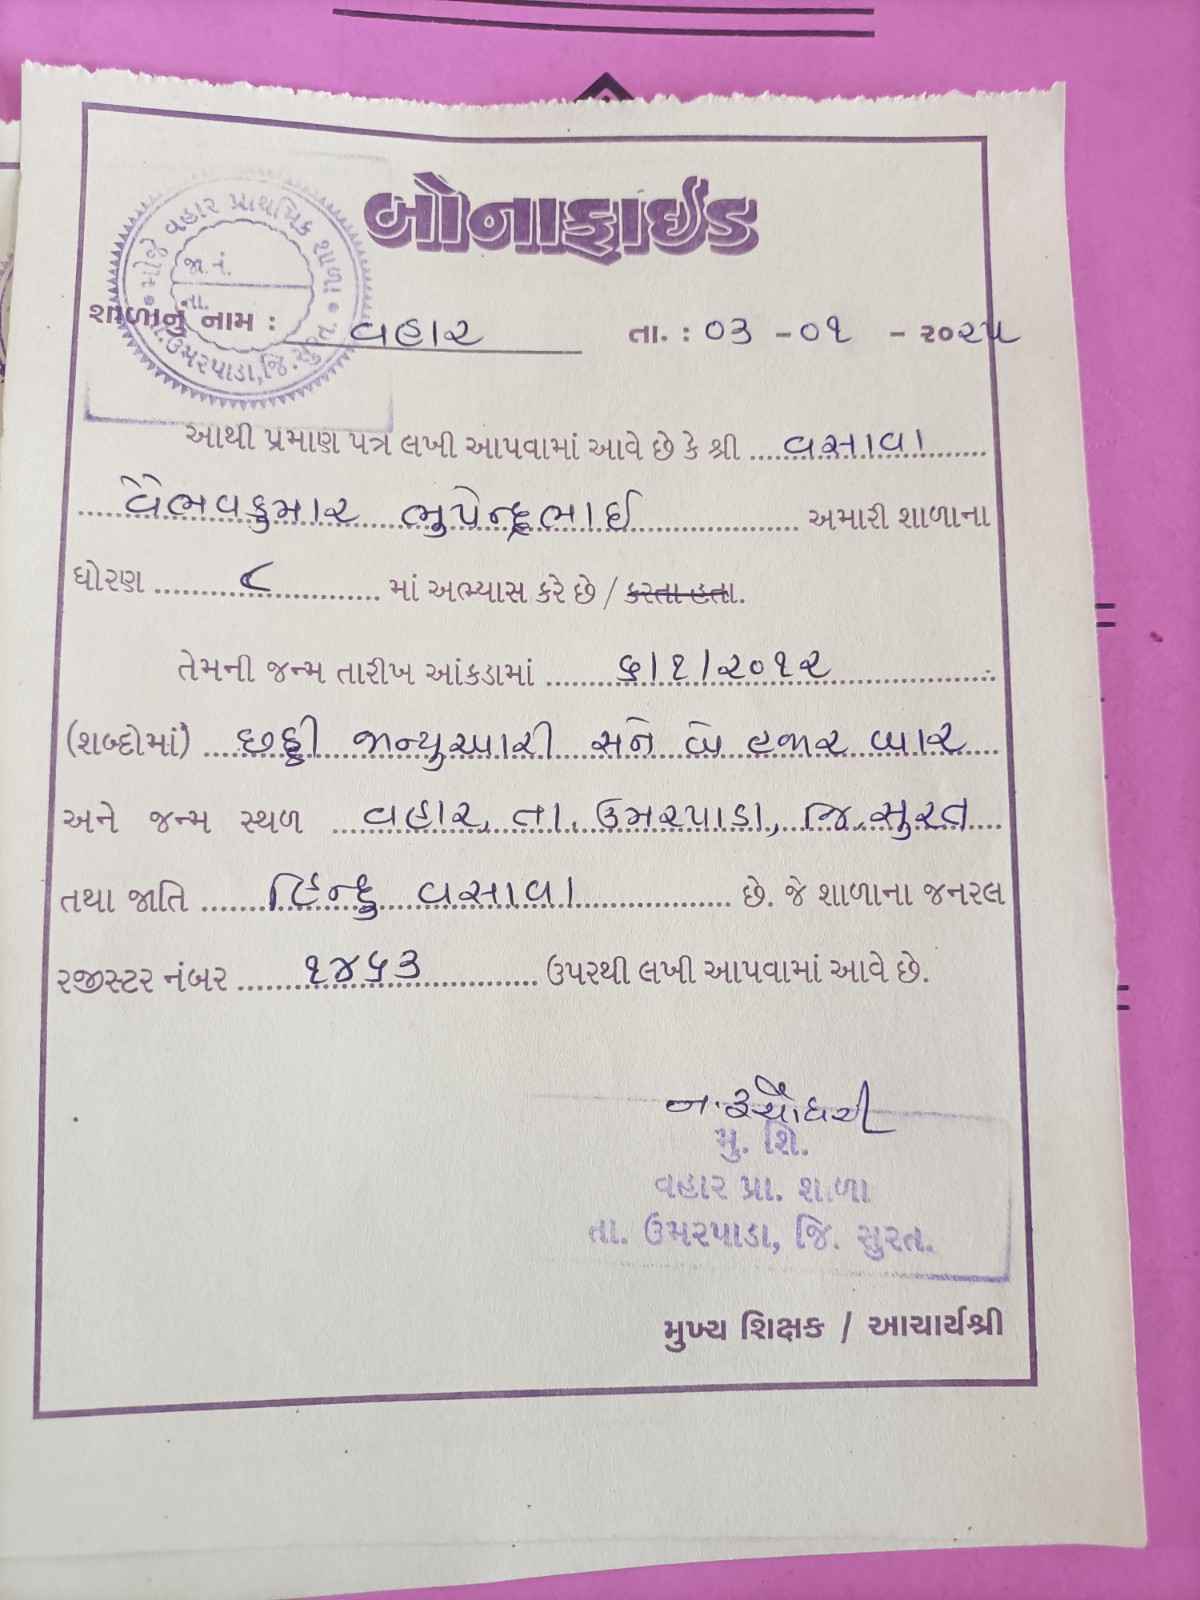 બોનાફાઈડ
મોજે વહાર પ્રાથમિક શાળા
જા.નં.
તા.
તા.ઉમરપાડા,જિ.સુરત.
શાળાનું નામ : વહાર તા. : ૦૩ -૦૧ - ૨૦૨૫
આથી પ્રમાણ પત્ર લખી આપવામાં આવે છે કે શ્રી વસાવા
વૈભવકુમાર ભુપેન્દ્રભાઈ અમારી શાળાના
ધોરણ ૮ માં અભ્યાસ કરે છે / કરતા હતા.
તેમની જન્મ તારીખ આંકડામાં ૬/૧/૨૦૧૨
(શબ્દોમાં) છઠ્ઠી જાન્યુઆરી સને બે હજાર બાર
અને જન્મ સ્થળ વહાર, તા. ઉમરપાડા, જિ.સુરત
તથા જાતિ હિન્દુ વસાવા છે. જે શાળાના જનરલ
રજીસ્ટર નંબર ૧૪૫૩ ઉપરથી લખી આપવામાં આવે છે.
મુ. શિ.
વહાર પ્રા. શાળા
તા. ઉમરપાડા, જિ. સુરત.
મુખ્ય શિક્ષક / આચાર્યશ્રી